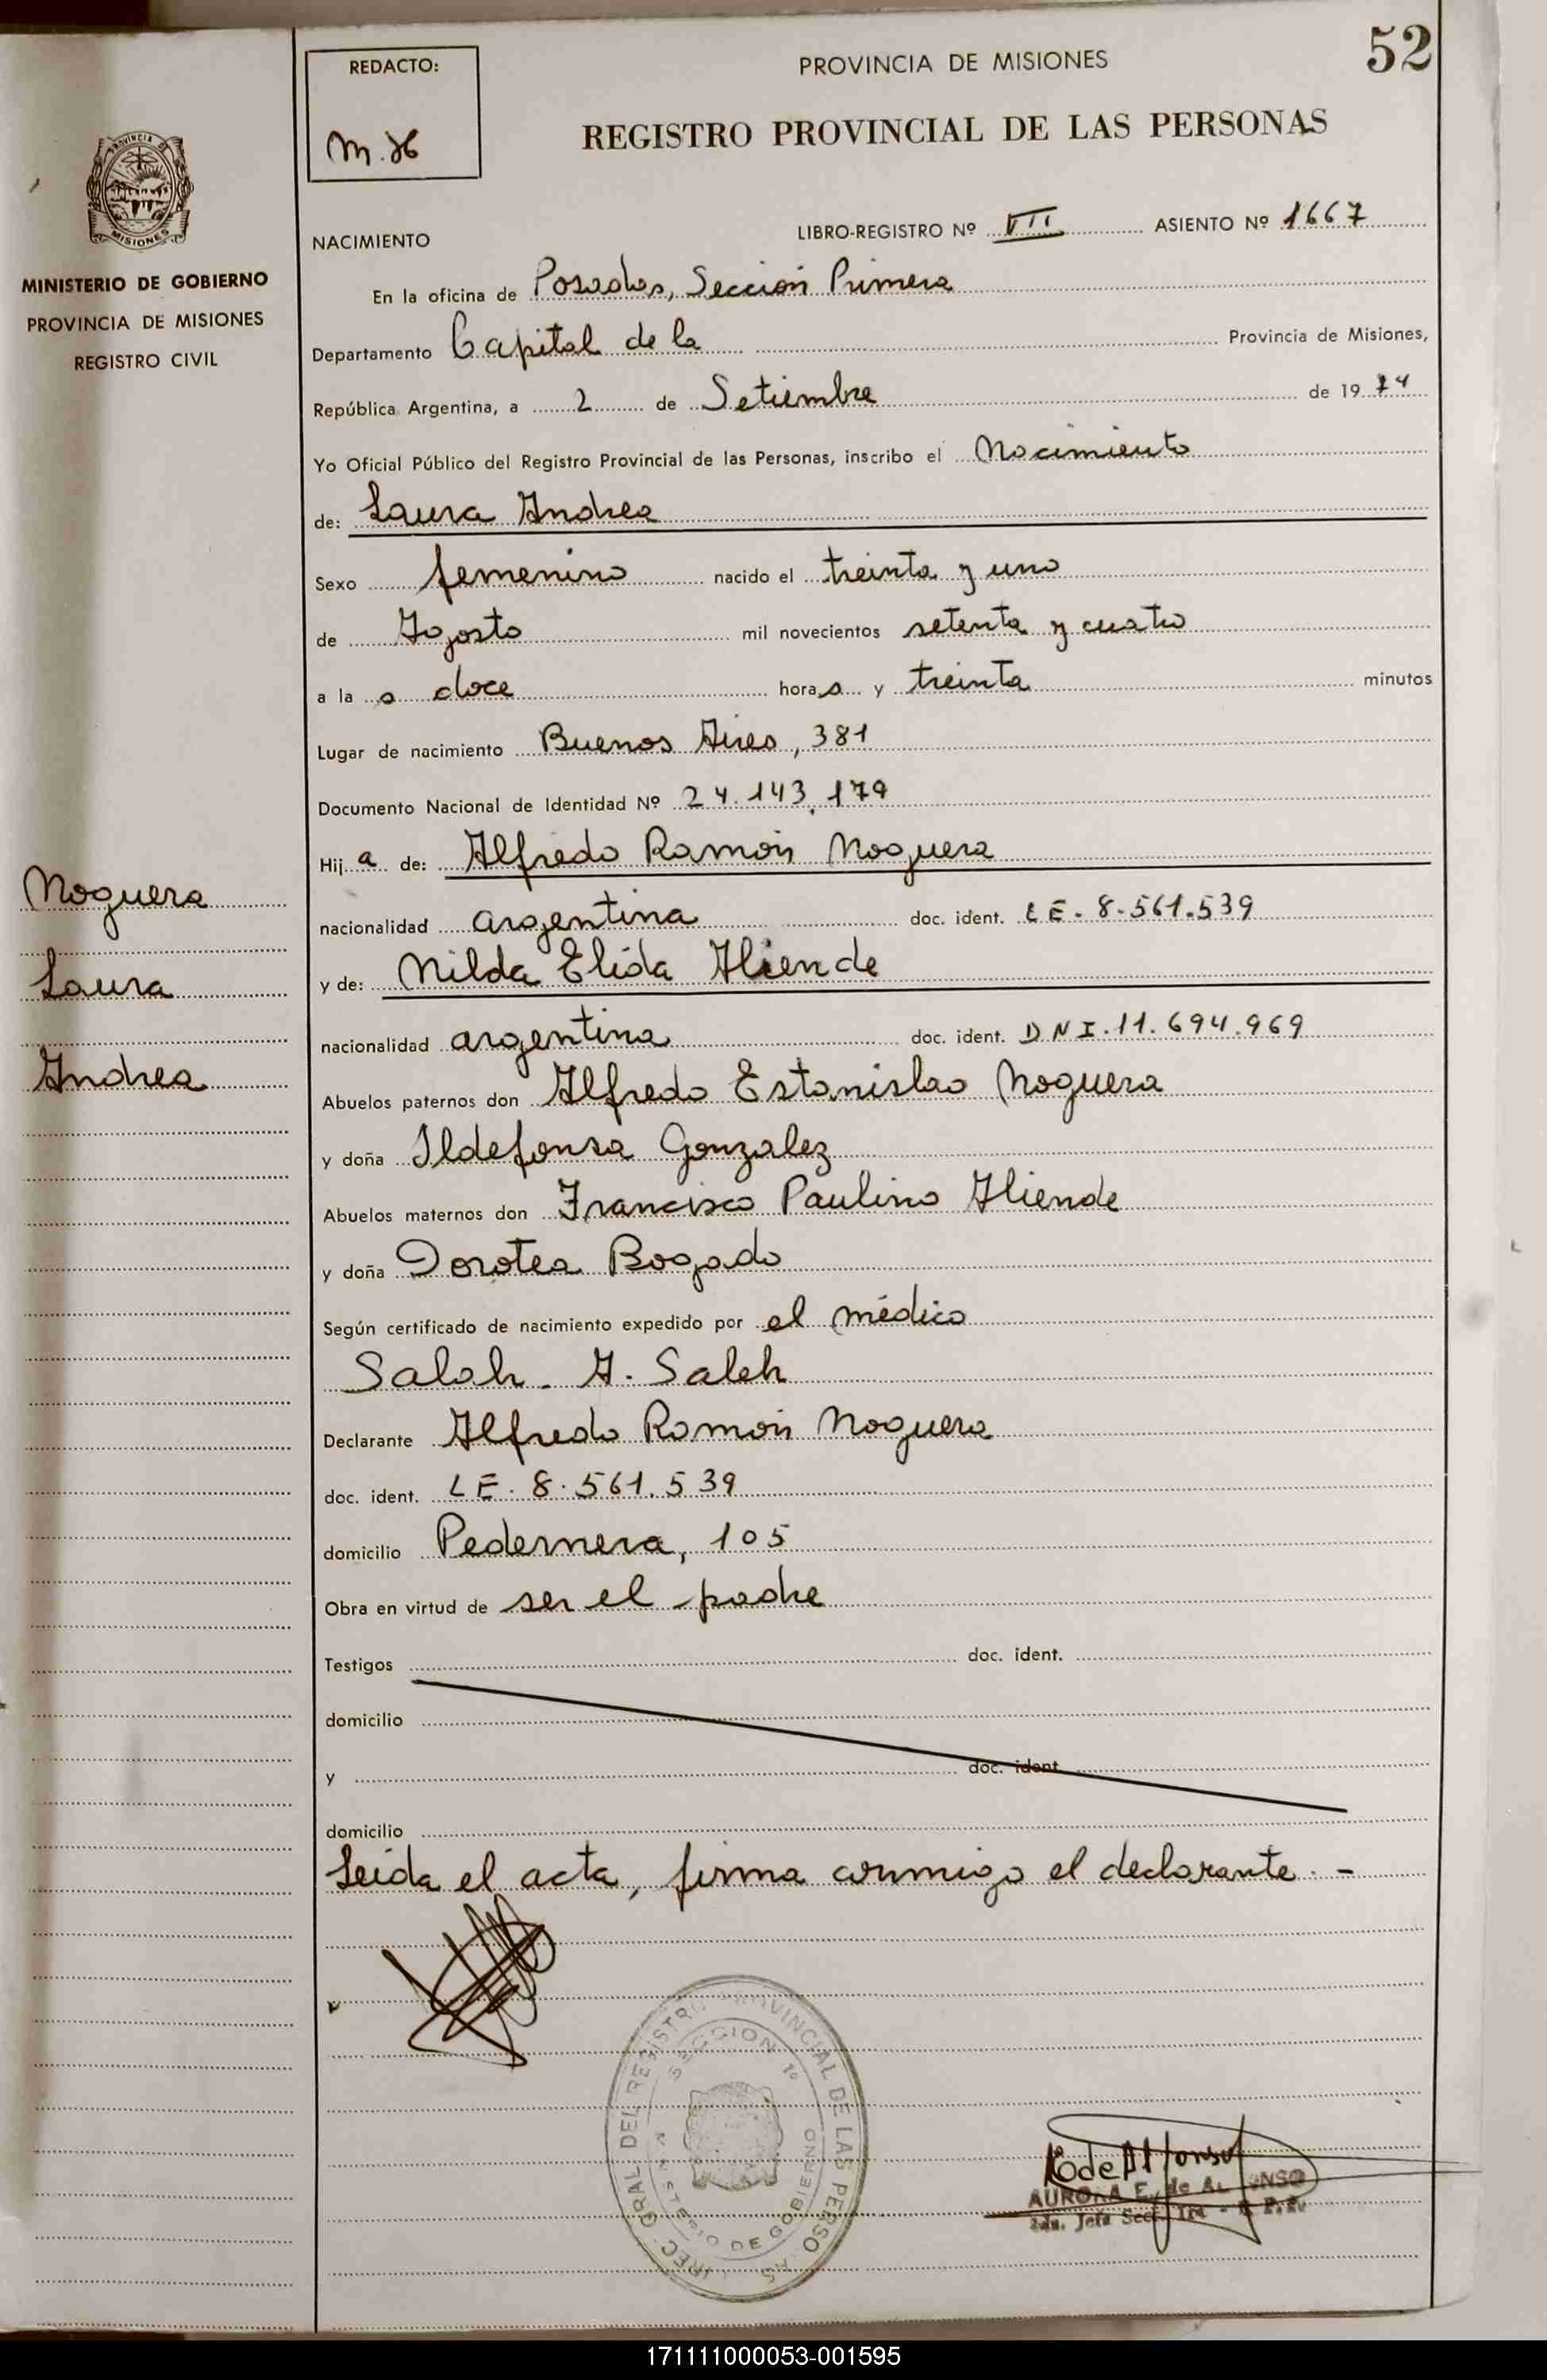 52
REDACTO:
M.H
PROVINCIA DE MISIONES
REGISTRO PROVINCIAL DE LAS PERSONAS
PROVINCIA DE
MISIONES
MINISTERIO DE GOBIERNO
PROVINCIA DE MISIONES
REGISTRO CIVIL
NACIMIENTO LIBRO-REGISTRO Nº VII ASIENTO Nº 1667
En la oficina de Posadas, Sección Primera
Departamento Capital de la Provincia de Misiones,
República Argentina, a 2 de Setiembre de 1974
Yo Oficial Público del Registro Provincial de las Personas, inscribo el Nacimiento
de: Laura Andrea
Sexo femenino nacido el treinta y uno
de Agosto mil novecientos setenta y cuatro
a la s doce horas y treinta minutos
Lugar de nacimiento Buenos Aires, 381
Documento Nacional de Identidad Nº 24.143.179
Hija de: Alfredo Ramón Noguera
nacionalidad argentina doc. ident. LE. 8.561.539
y de: Nilda Elida Aliende
nacionalidad argentina doc. ident. DNI. 11.694.969
Abuelos paternos don Alfredo Estanislao Noguera
y doña Ildefonsa Gonzalez
Abuelos maternos don Francisco Paulino Aliende
y doña Dorotea Bogado
Según certificado de nacimiento expedido por el médico
Saleh. A. Saleh
Declarante Alfredo Ramón Noguera
doc. ident. LE. 8.561.539
domicilio Pedernera, 105
Obra en virtud de ser el padre
Testigos doc. ident.
domicilio
y doc. ident.
domicilio
Leída el acta, firma conmigo el declarante. -
Noguera
Laura
Andrea
DIREC. GRAL DEL REGISTRO PROVINCIAL DE LAS PERSONAS
SECCION 1º
MINISTERIO DE GOBIERNO
E de Alfonso
AURORA E. de ALFONSO
171111000053-001595